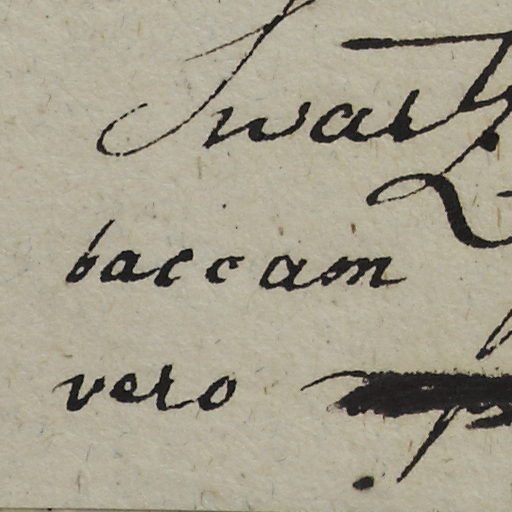 Swartz
baccam
vero